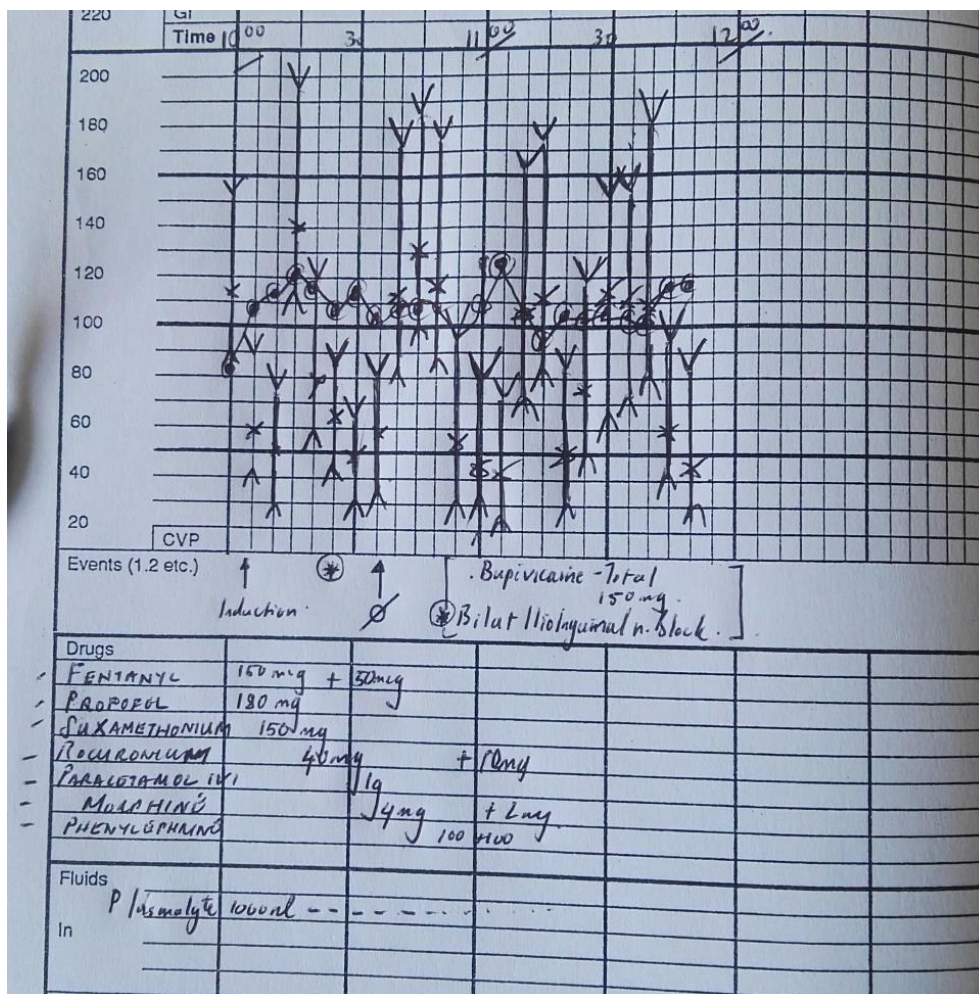 220 GI
Time 10 00 30 11 00 30 12 00.
200
180
160
140
120
100
80
60
40
20
CVP
Events (1.2 etc.)
Induction.
Bupivicaine - Total
150 mg.
Bilat Ilioinguinal n. Block.
Drugs
FENTANYL 150 mcg + 50mcg
PROPOFOL 180 mg
SUXAMETHONIUM 150 mg
ROCURONIUM 40mg + 10mg
PARACETAMOL IVI 1g
MORPHINE 4mg + 2mg
PHENYLEPHRINE 100 +100
Fluids
Plasmalyte 1000ml
In